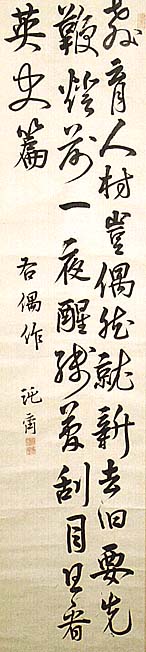 教育人材豈偶然就新去旧要先
鞭燈前一夜醒残夢刮目且看
英史篇
右偶作